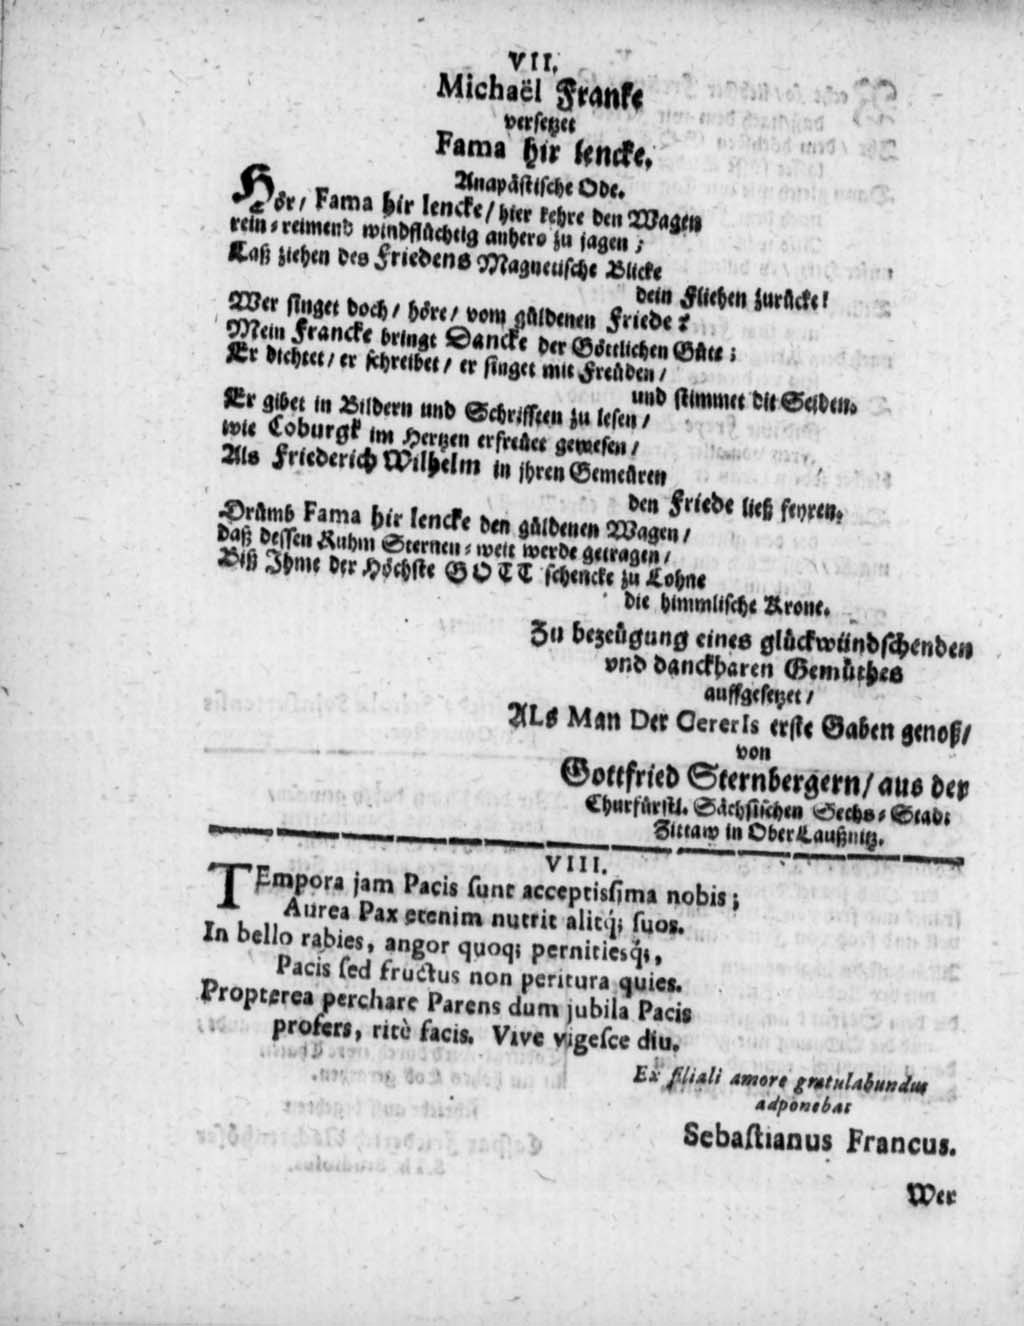 VII.
Michaël Franke
versetzet
Fama hir lencke.
Anapästische Ode.
Hör/ Fama hir lencke/ hier kehre den Wagen
rein⸗reimend windflüchtig anhero zu jagen;
Laß ziehen des Friedens Magnetische Blicke
dein Fliehen zurücke!
Wer singet doch/ höre/ vom güldenen Friede?
Mein Francke bringt Dancke der Göttlichen Güte;
Er dichtet/ er schreibet/ er singet mit Freüden/
und stimmet die Seiden.
Er gibet in Bildern und Schrifften zu lesen/
wie Coburgk im Hertzen erfreüet gewesen/
Als Friederich Wilhelm in jhren Gemeüren
den Friede ließ feyren.
Drümb Fama hir lencke den güldenen Wagen/
daß dessen Ruhm Sternen⸗weit werde getragen/
Biß Ihme der Höchste GOTT schencke zu Lohne
die himmlische Krone.
Zu bezeügung eines glückwündschenden
vnd danckbaren Gemüthes
auffgesetzet/
ALs Man Der CererIs erste Gaben genoß/
von
Gottfried Sternbergern/ aus der
Churfürstl. Sächsischen Sechs⸗Stadt
Zittaw in OberLaußnitz.
VIII.
TEmpora jam Pacis ſunt acceptisſima nobis;
Aurea Pax etenim nutrit alitq́; ſuos.
In bello rabies, angor quoq; pernitiesq́;,
Pacis ſed fructus non peritura quies.
Propterea perchare Parens dum jubila Pacis
profers, ritè facis. Vive vigeſce diu.
Ex filiali amore gratulabundus
adponebat
Sebaſtianus Francus.
Wer